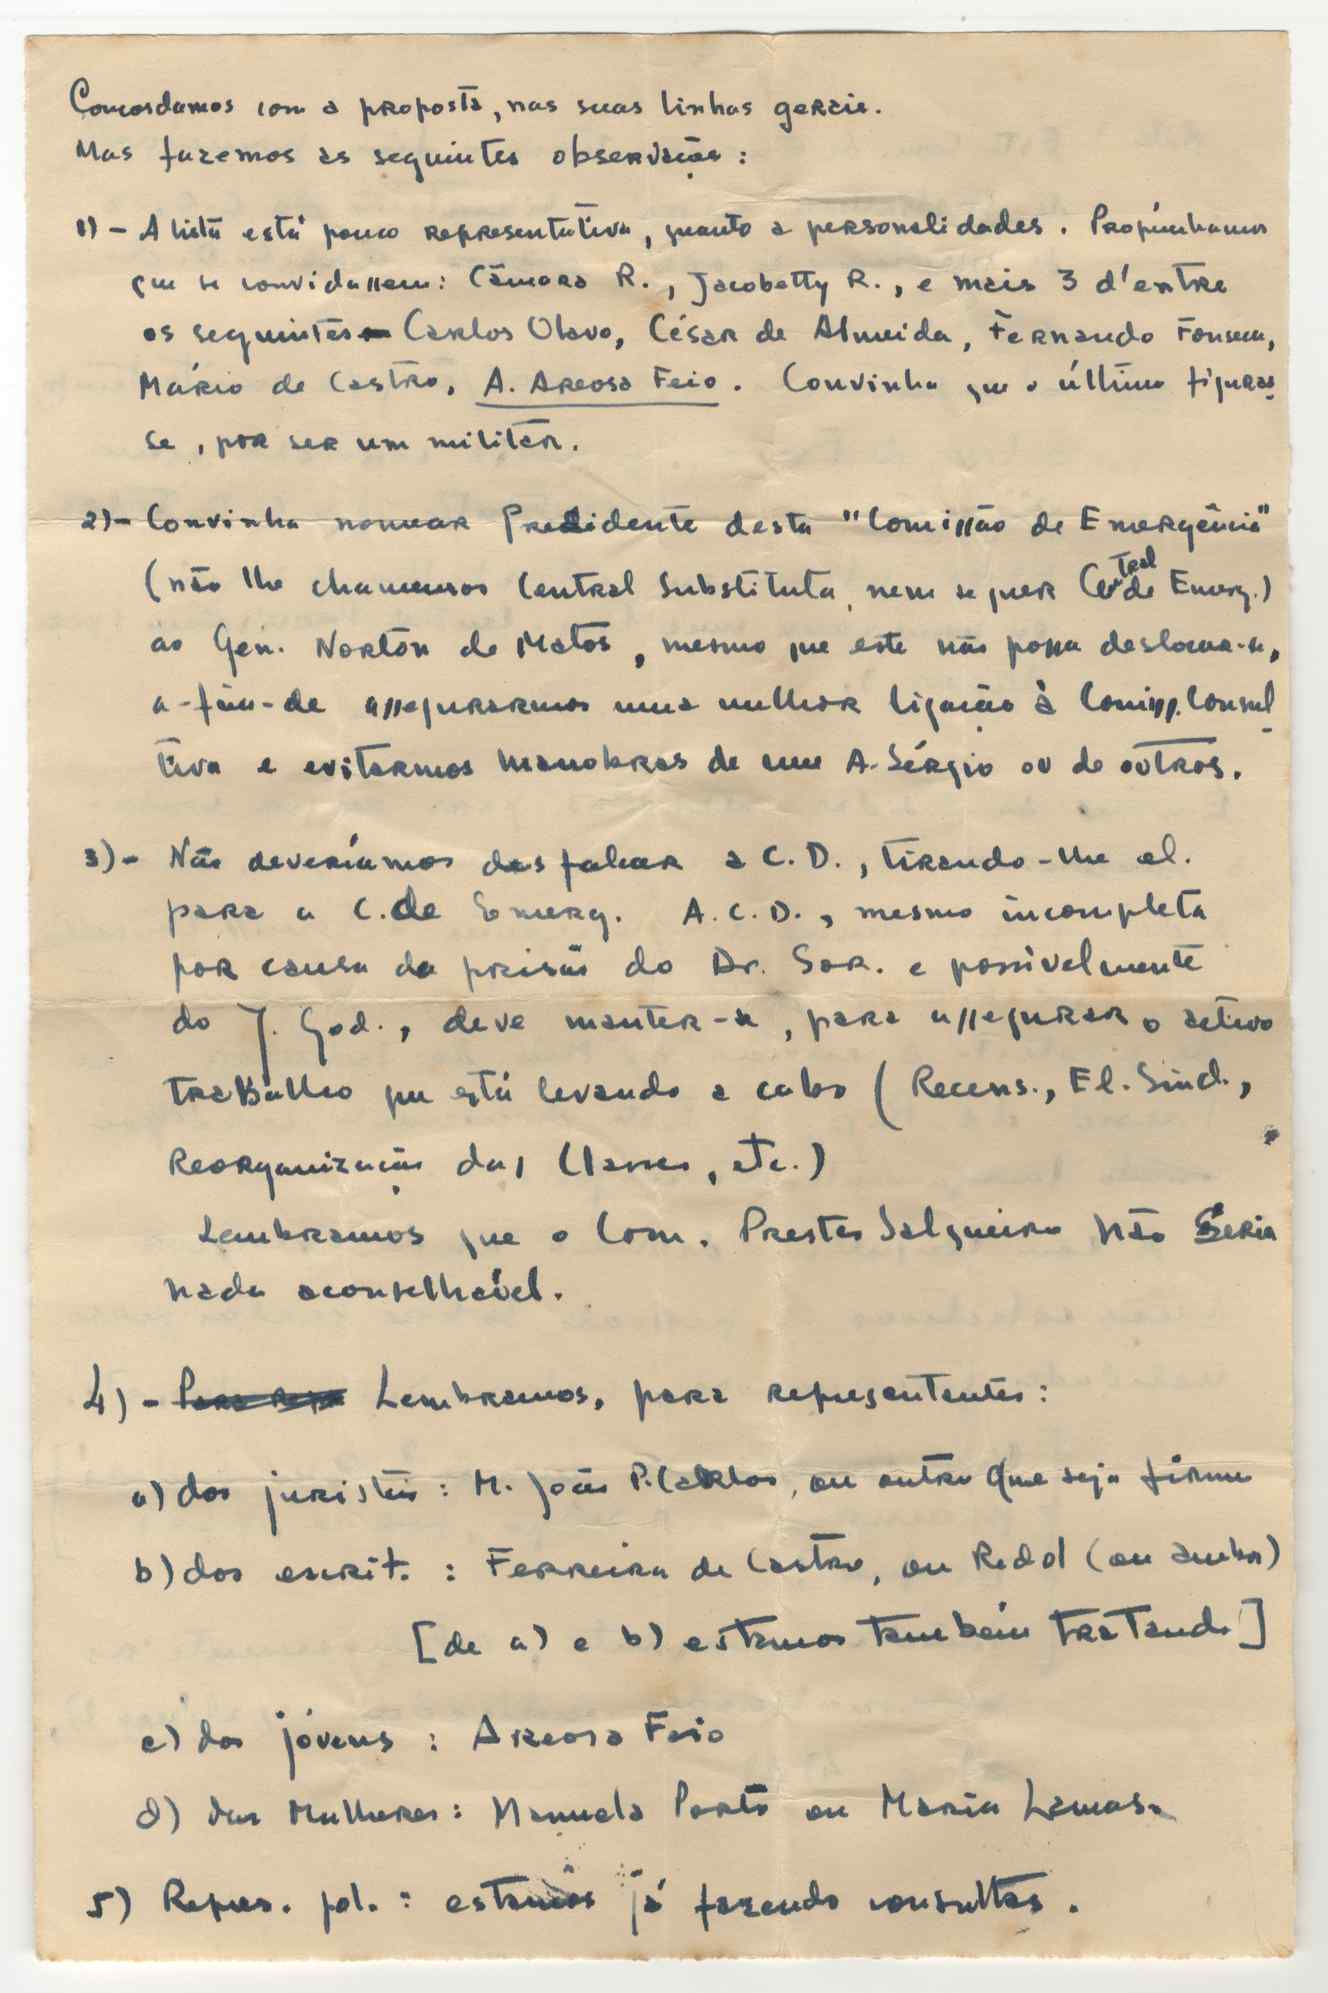 Concordamos com a proposta, nas suas linhas gerais.
Mas fazemos as seguintes observações:
1) - A lista está pouco representativa, quanto a personalidades. Propúnhamos
que se convidassem: Câmara R., Jacobetty R., e mais 3 d'entre
os seguintes - Carlos Olavo, César de Almeida, Fernando Fonseca,
Mário de Castro, A. Areosa Feio. Convinha que o último figuras-
se, por ser um militar.
2) - Convinha nomear Presidente desta "Comissão de Emergência"
(não lhe chamemos Central Substituta, nem sequer Central de Emerg.)
ao Gen. Norton de Matos, mesmo que este não possa deslocar-se,
a-fim-de assegurarmos uma melhor ligação à Comiss. Consul-
tiva e evitarmos manobras de um A. Sérgio ou de outros.
3) - Não deveríamos desfalcar a C. D., tirando-lhe el.
para a C. de Emerg. A. C. D., mesmo incompleta
por causa da prisão do Dr. Sar. e possivelmente
do J. God., deve manter-se, para assegurar o activo
trabalho que está levando a cabo (Recens., El. Sind.,
Reorganização das Classes, etc.)
Lembramos que o Com. Prestes Salgueiro não seria
nada aconselhável.
4) - Lembramos, para representantes:
a) dos juristas: M. João P. Carlos, ou outro que seja firme
b) dos escrit. : Ferreira de Castro, ou Redol (ou ambos)
[de a) e b) estamos também tratando]
c) dos jóvens : Areosa Feio
d) das Mulheres: Manuela Porto ou Maria Lamas.
5) Repres. pol. : estamos já fazendo consultas.